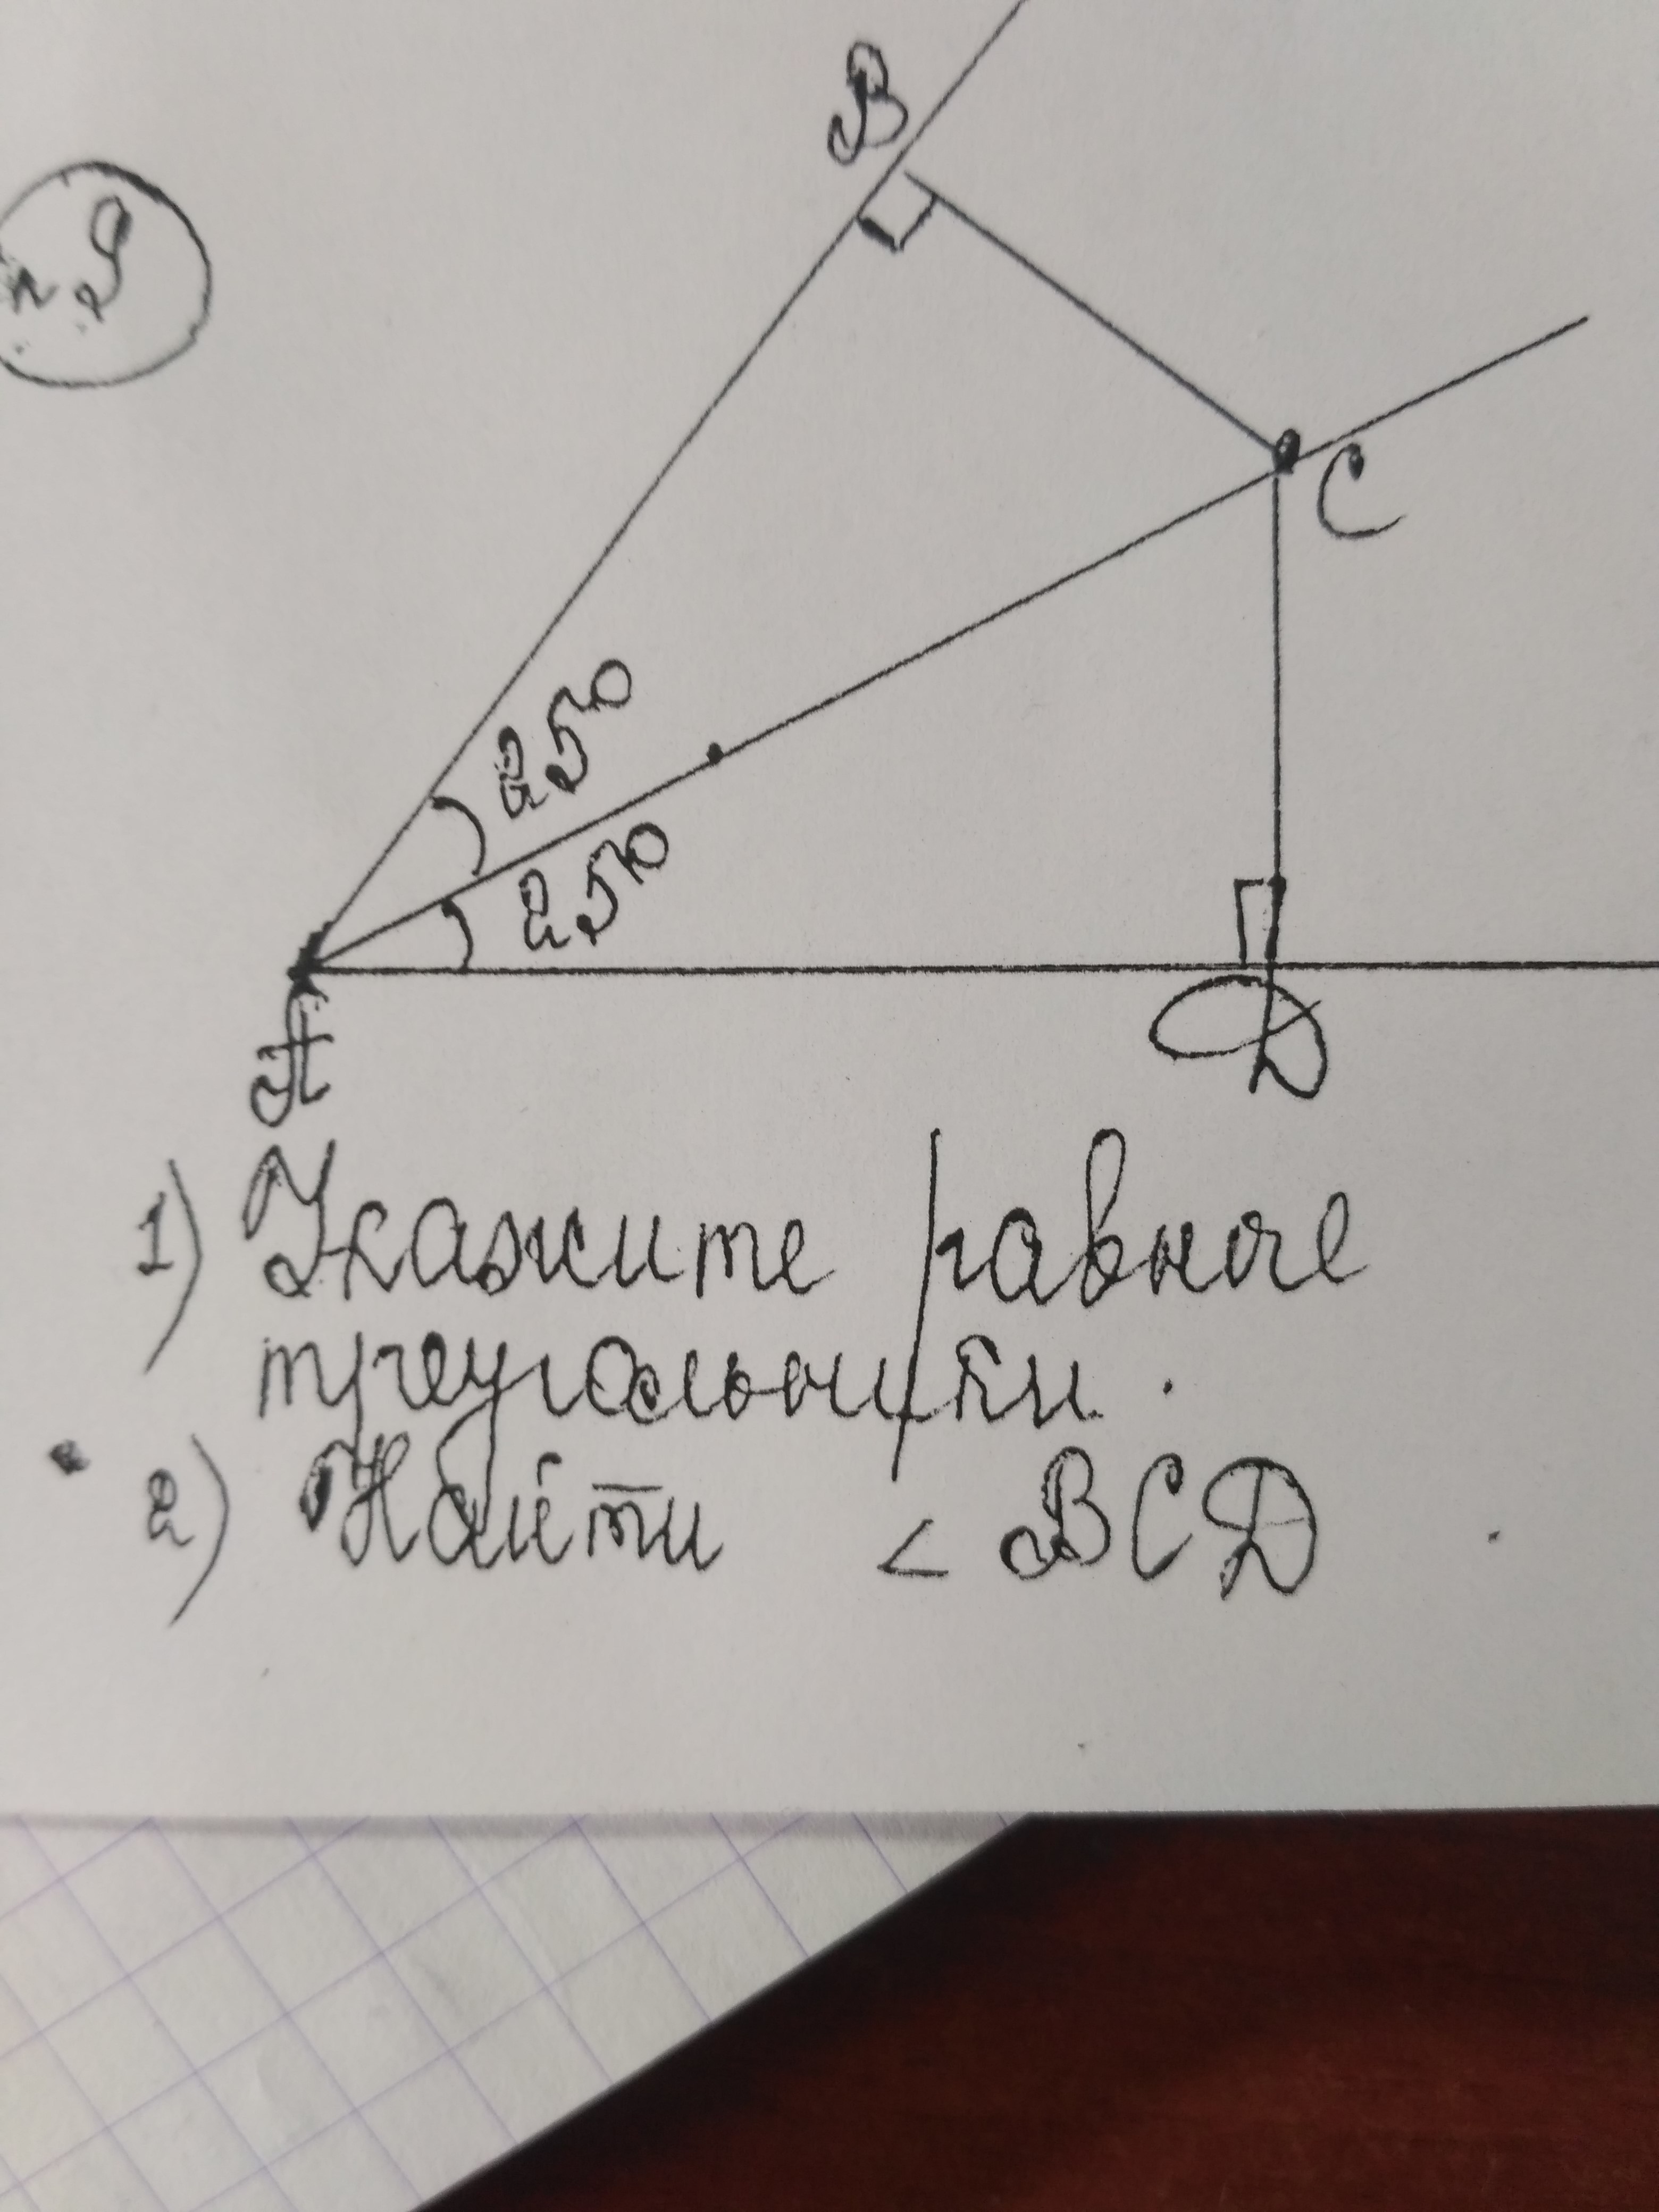 B
C
25°
25°
A
D
1) Укажите равные
треугольники.
2) Найти < BCD